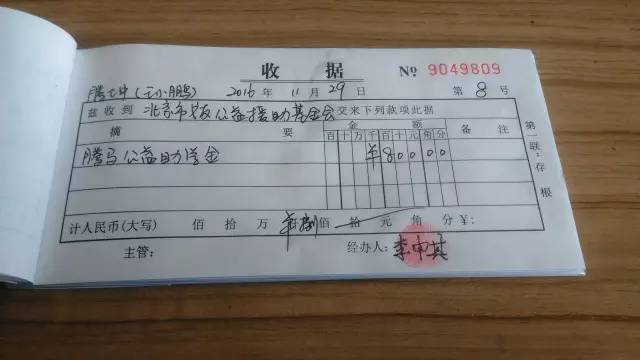 收 据 No 9049809
(王小鹏) 2016 年 11 月 29 日 第 8 号
兹收到 北京市 公益援助基金会 交来下列款项此据
摘 要 金 额 备 注
百 十 万 千 百 十 元 角 分
腾马公益助学金 ¥ 8 0 0 0 0
计人民币(大写) 佰 拾 万 仟 捌 佰 拾 元 角 分 ¥:
主管: 经办人: 李中其
第一联:存根